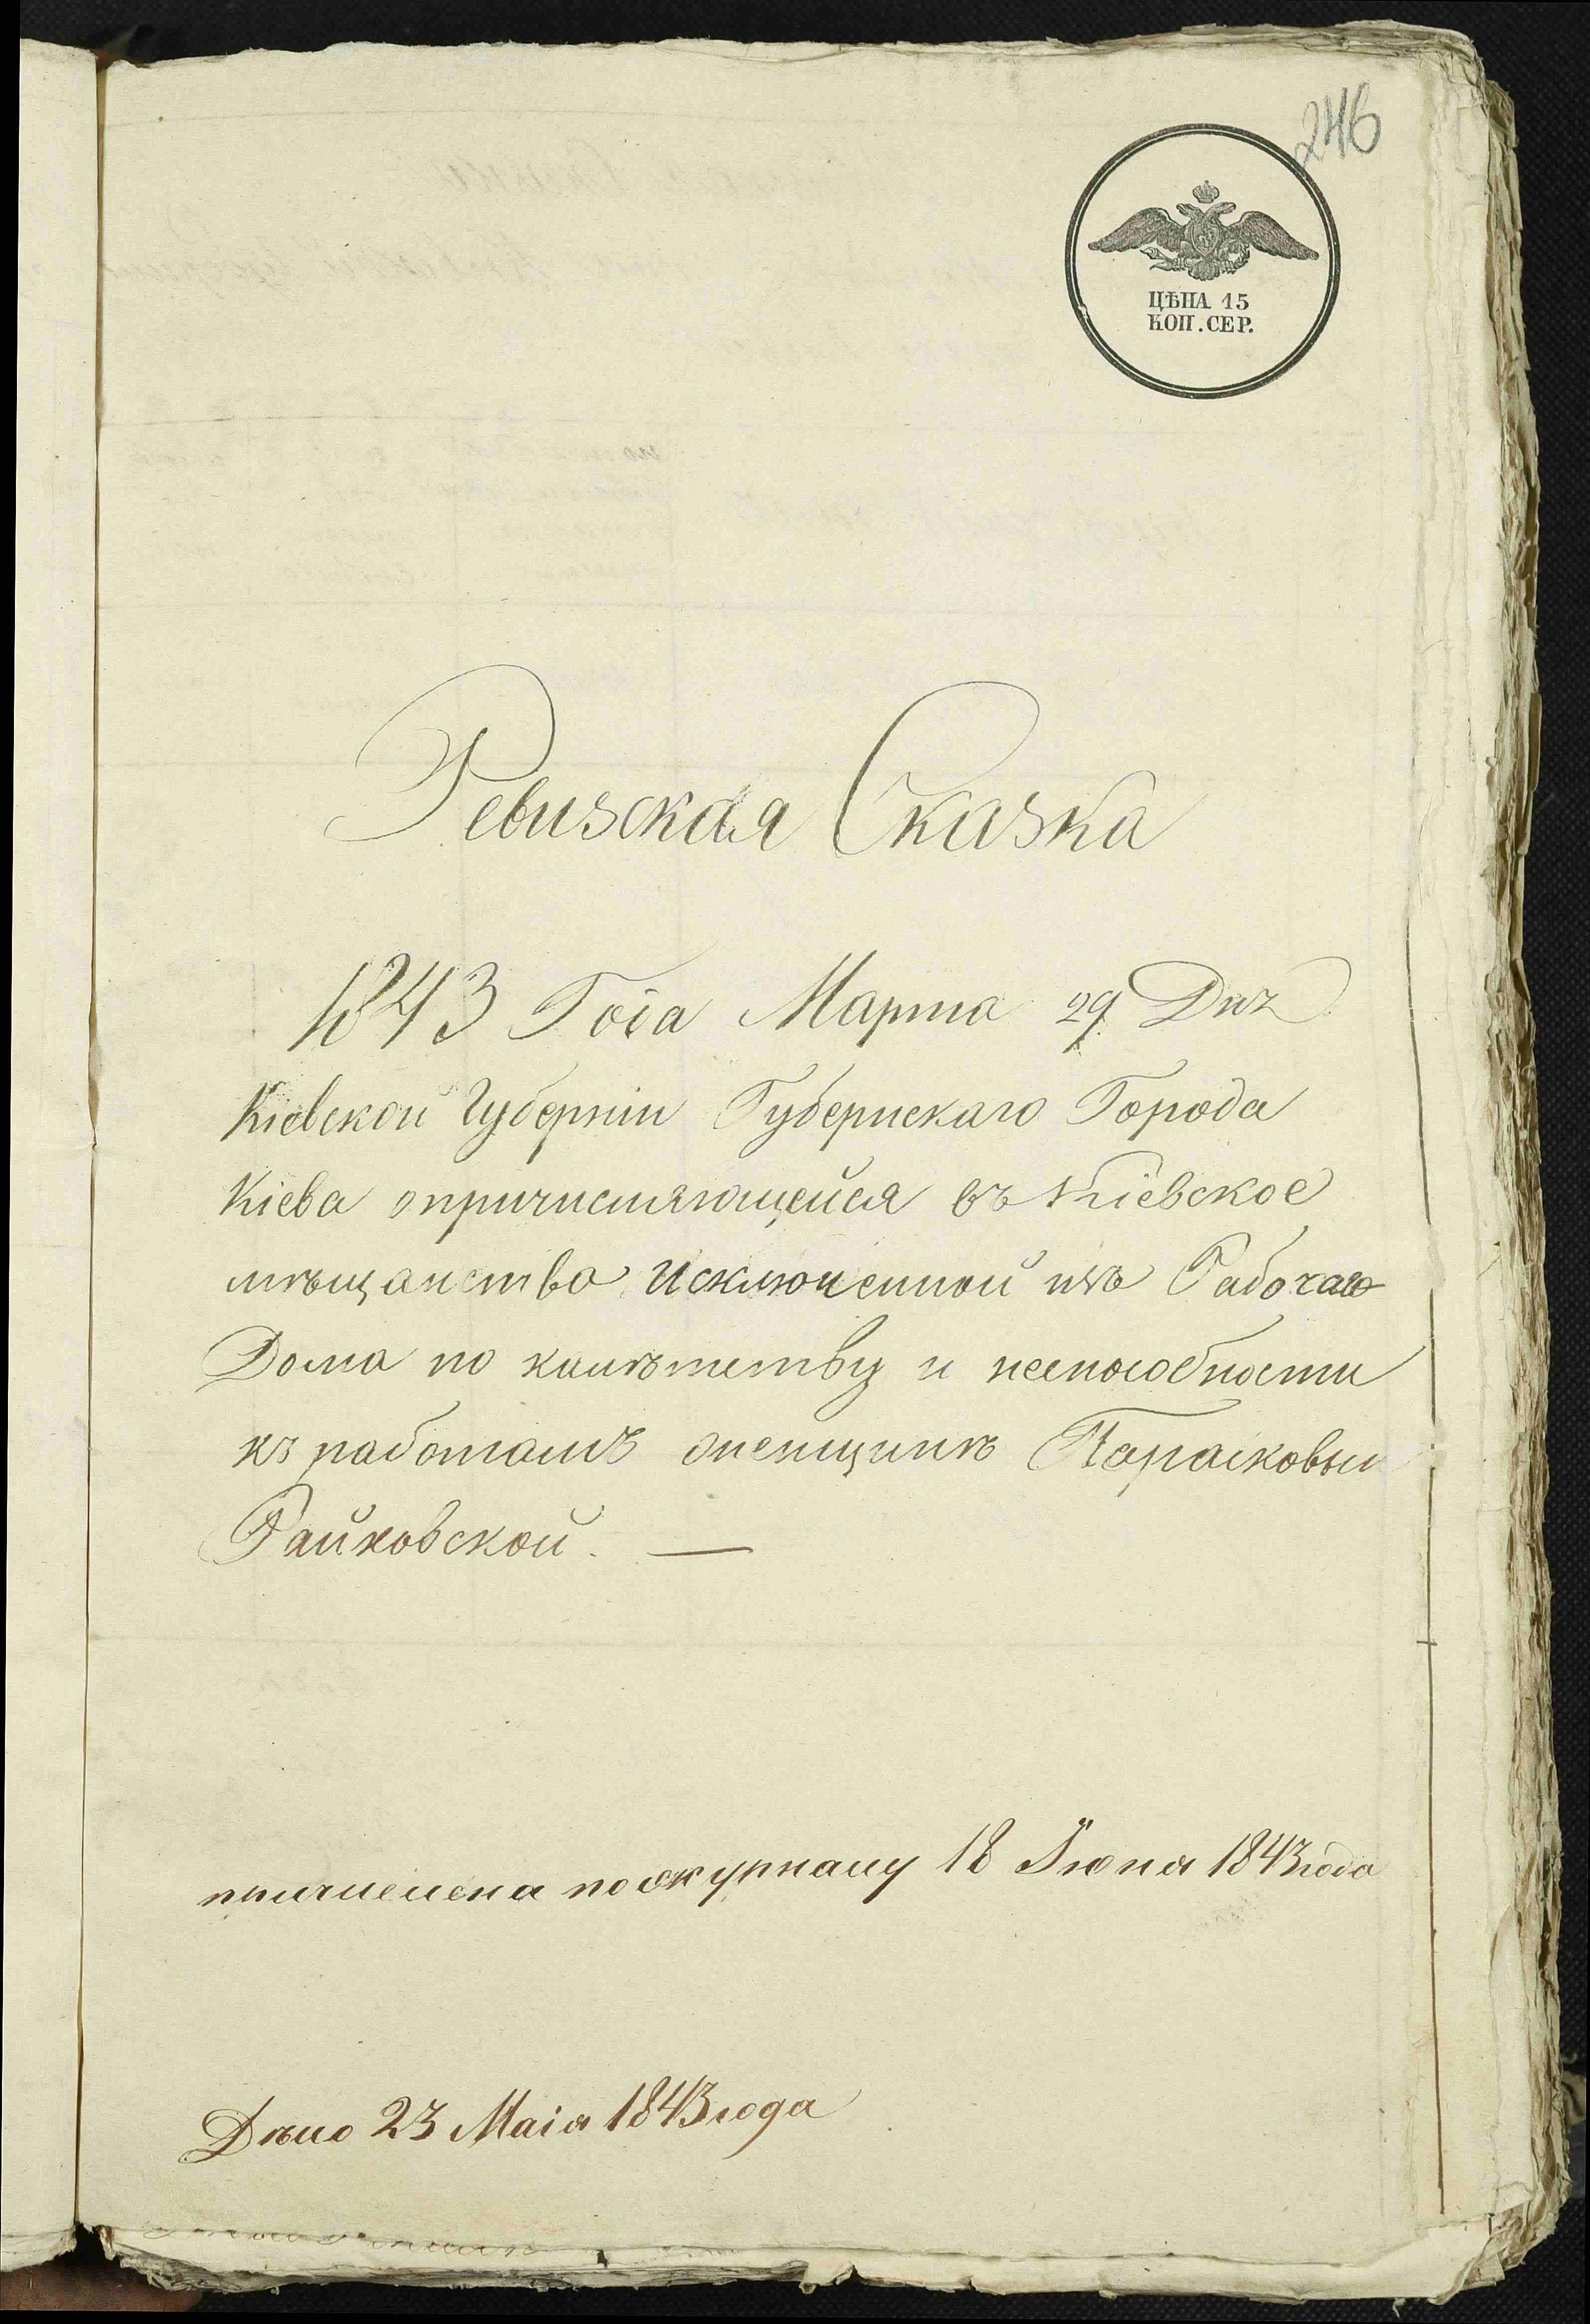 246
ЦѢНА 15
КОП. СЕР.
Ревизская Сказка
1843 Года Марта 29 Дня
Кіевской Губерніи Губернскаго Города
Кіева опричисляющейся въ Кіевское
мѣщанство Исключенной изъ Рабочаго
Дома по калѣтству и неспособности
къ работамъ женщинѣ Парасковьи
Райковской. —
причислена по журналу 18 Іюня 1843 года
Дѣло 23 Маія 1843 года